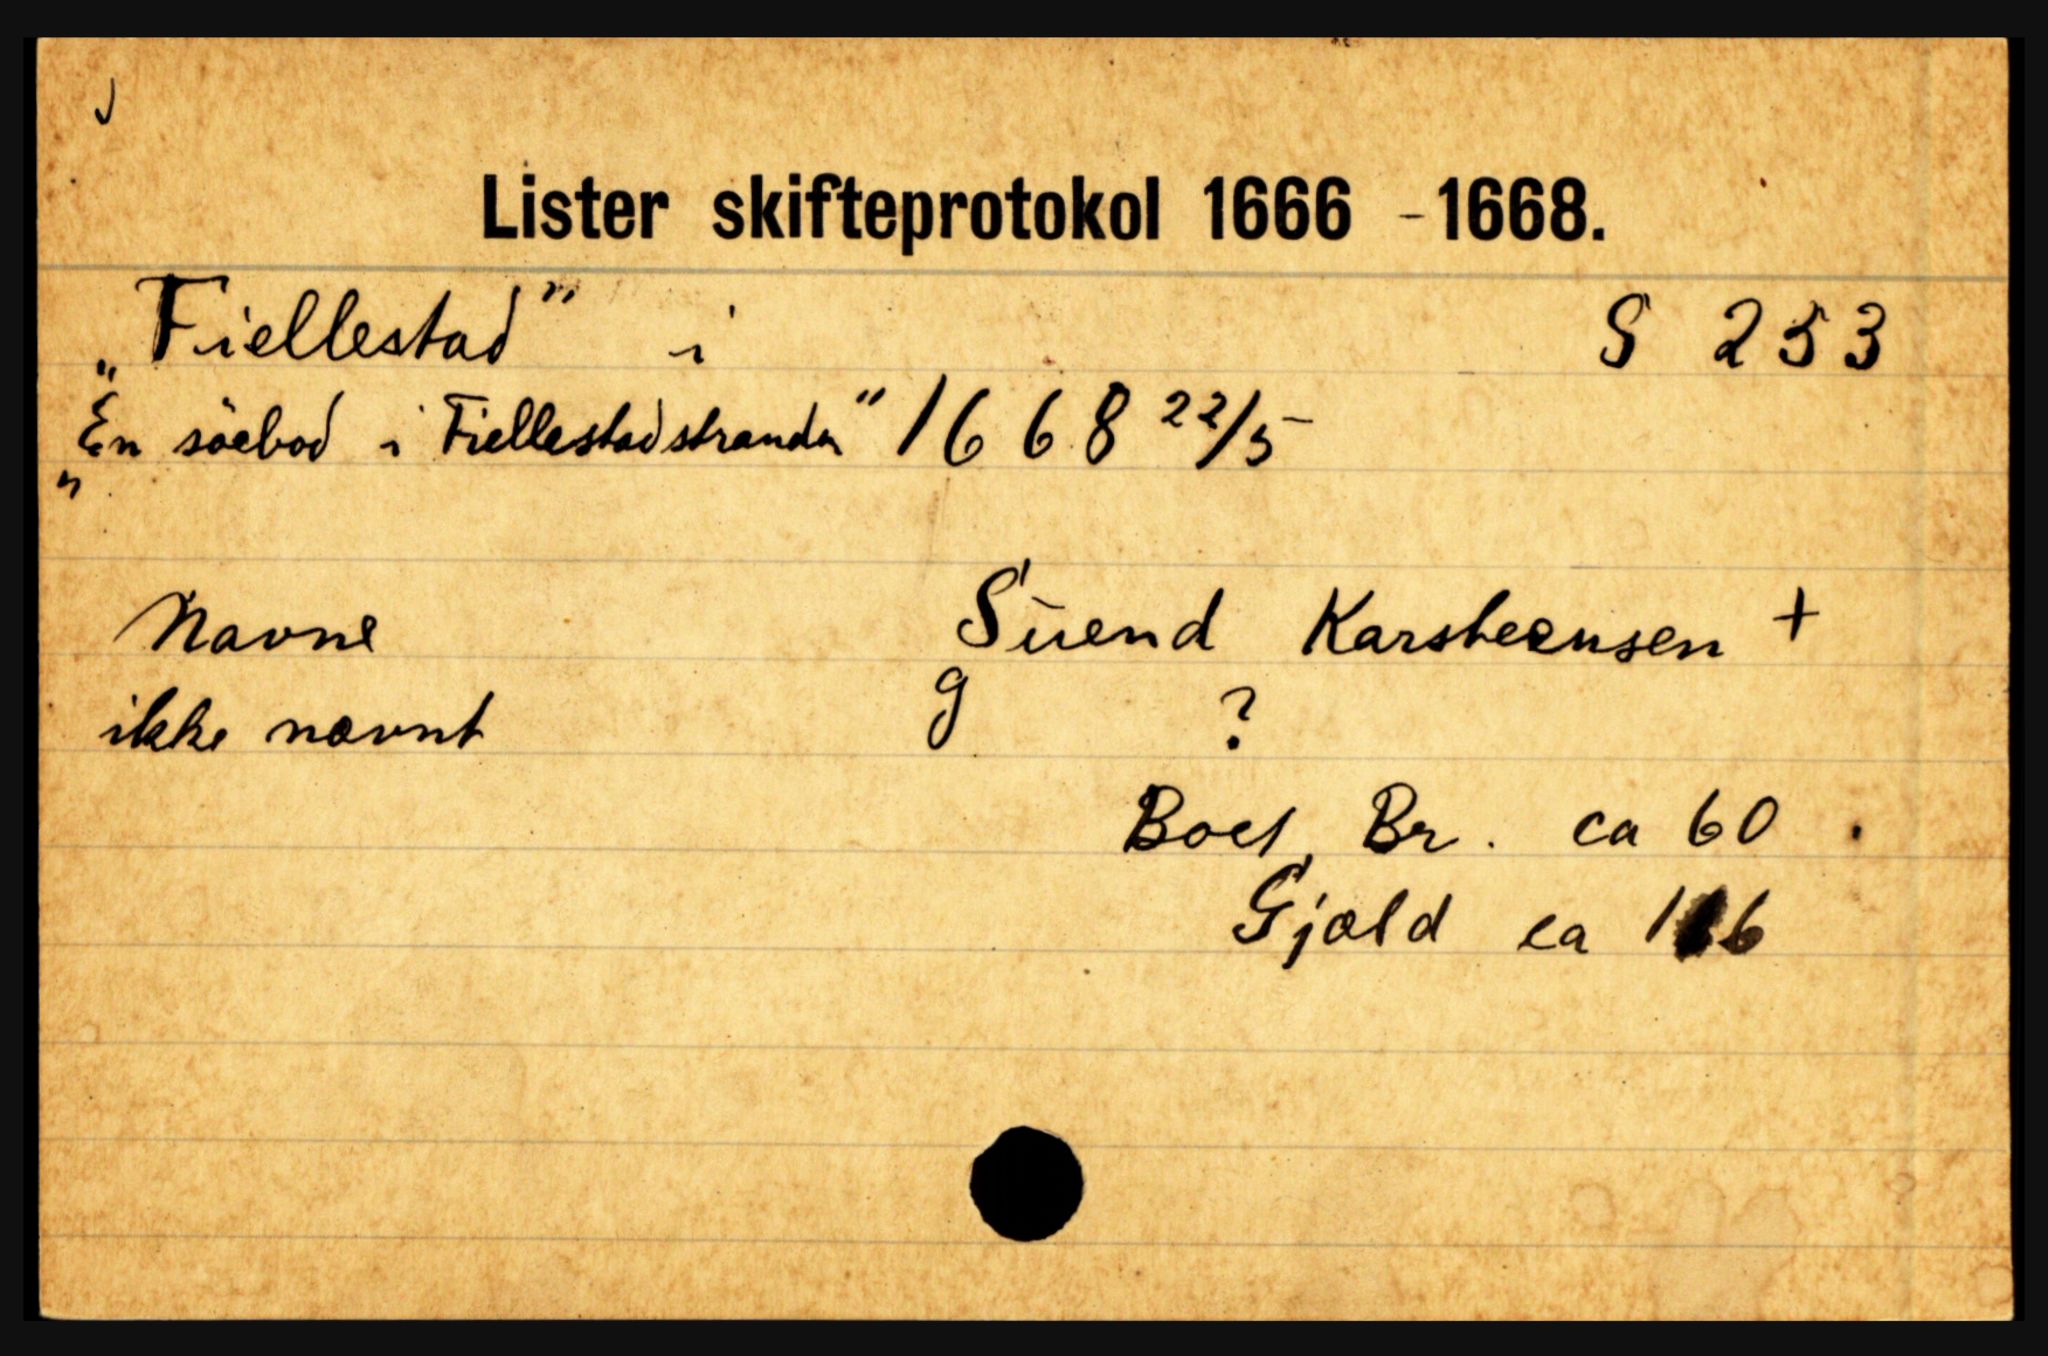 Lister skifteprotokol 1666 - 1668.
„Fiellestad" i S 253
„En söebod i Fiellestadstranden" 1668 22/5
Navne Suend Karsteensen +
ikke nævnt g ?
Boet Br. ca 60.
Gjæld ca